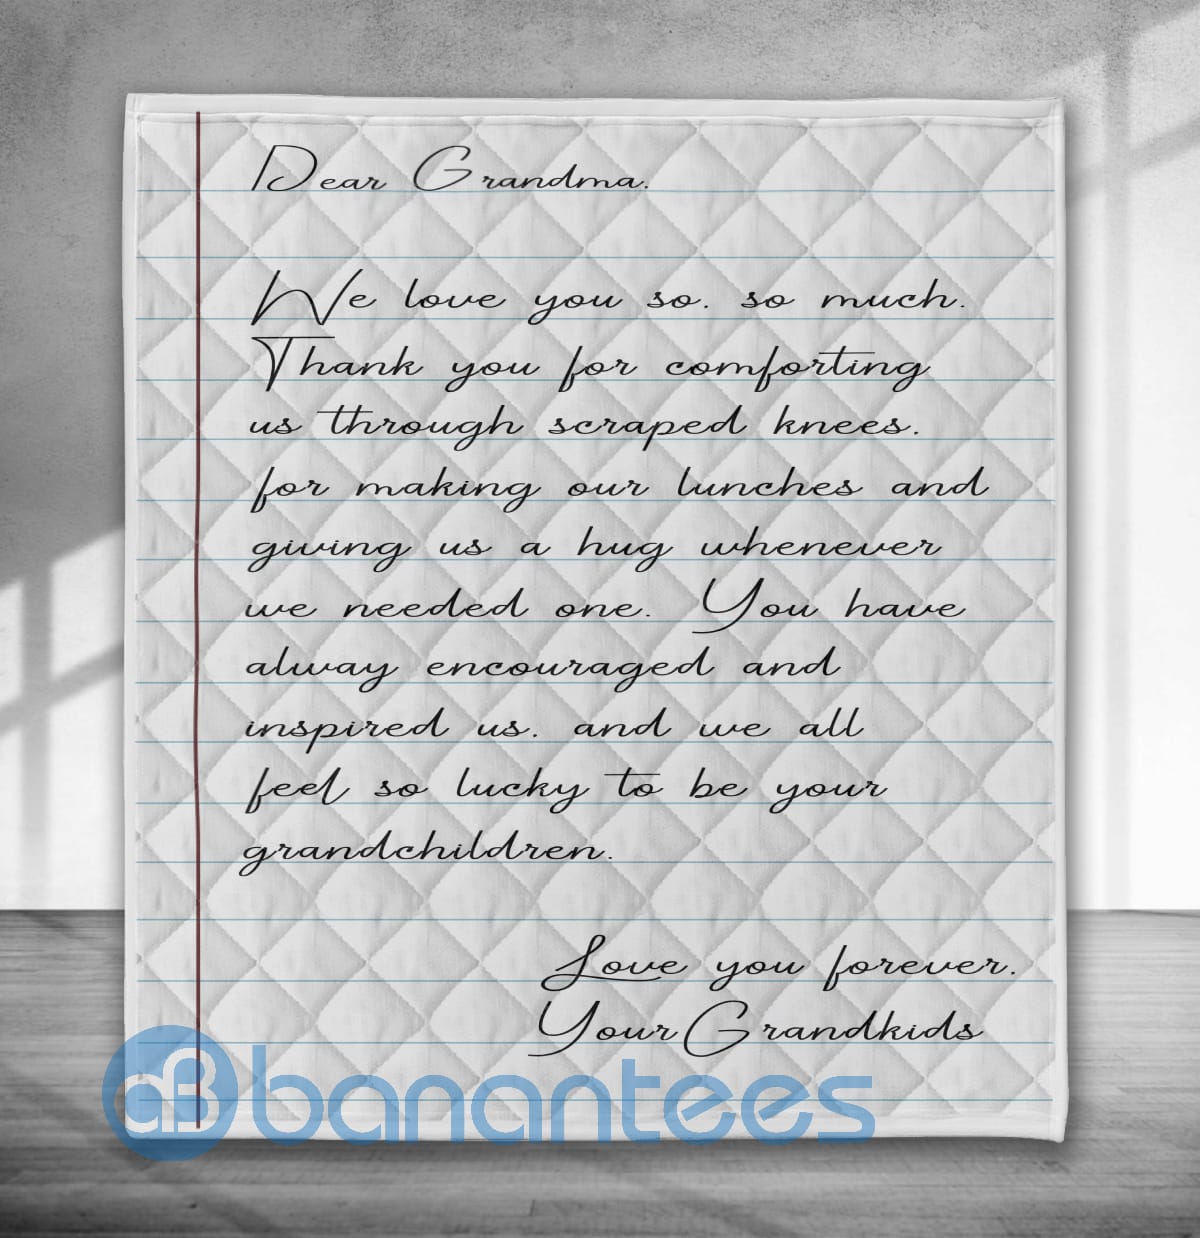 Dear Grandma.
We love you so. so much.
Thank you for comforting
us through scraped knees.
for making our lunches and
giving us a hug whenever
we needed one. You have
alway encouraged and
inspired us. and we all
feel so lucky to be your
grandchildren.
Love you forever.
Your Grandkids
banantees